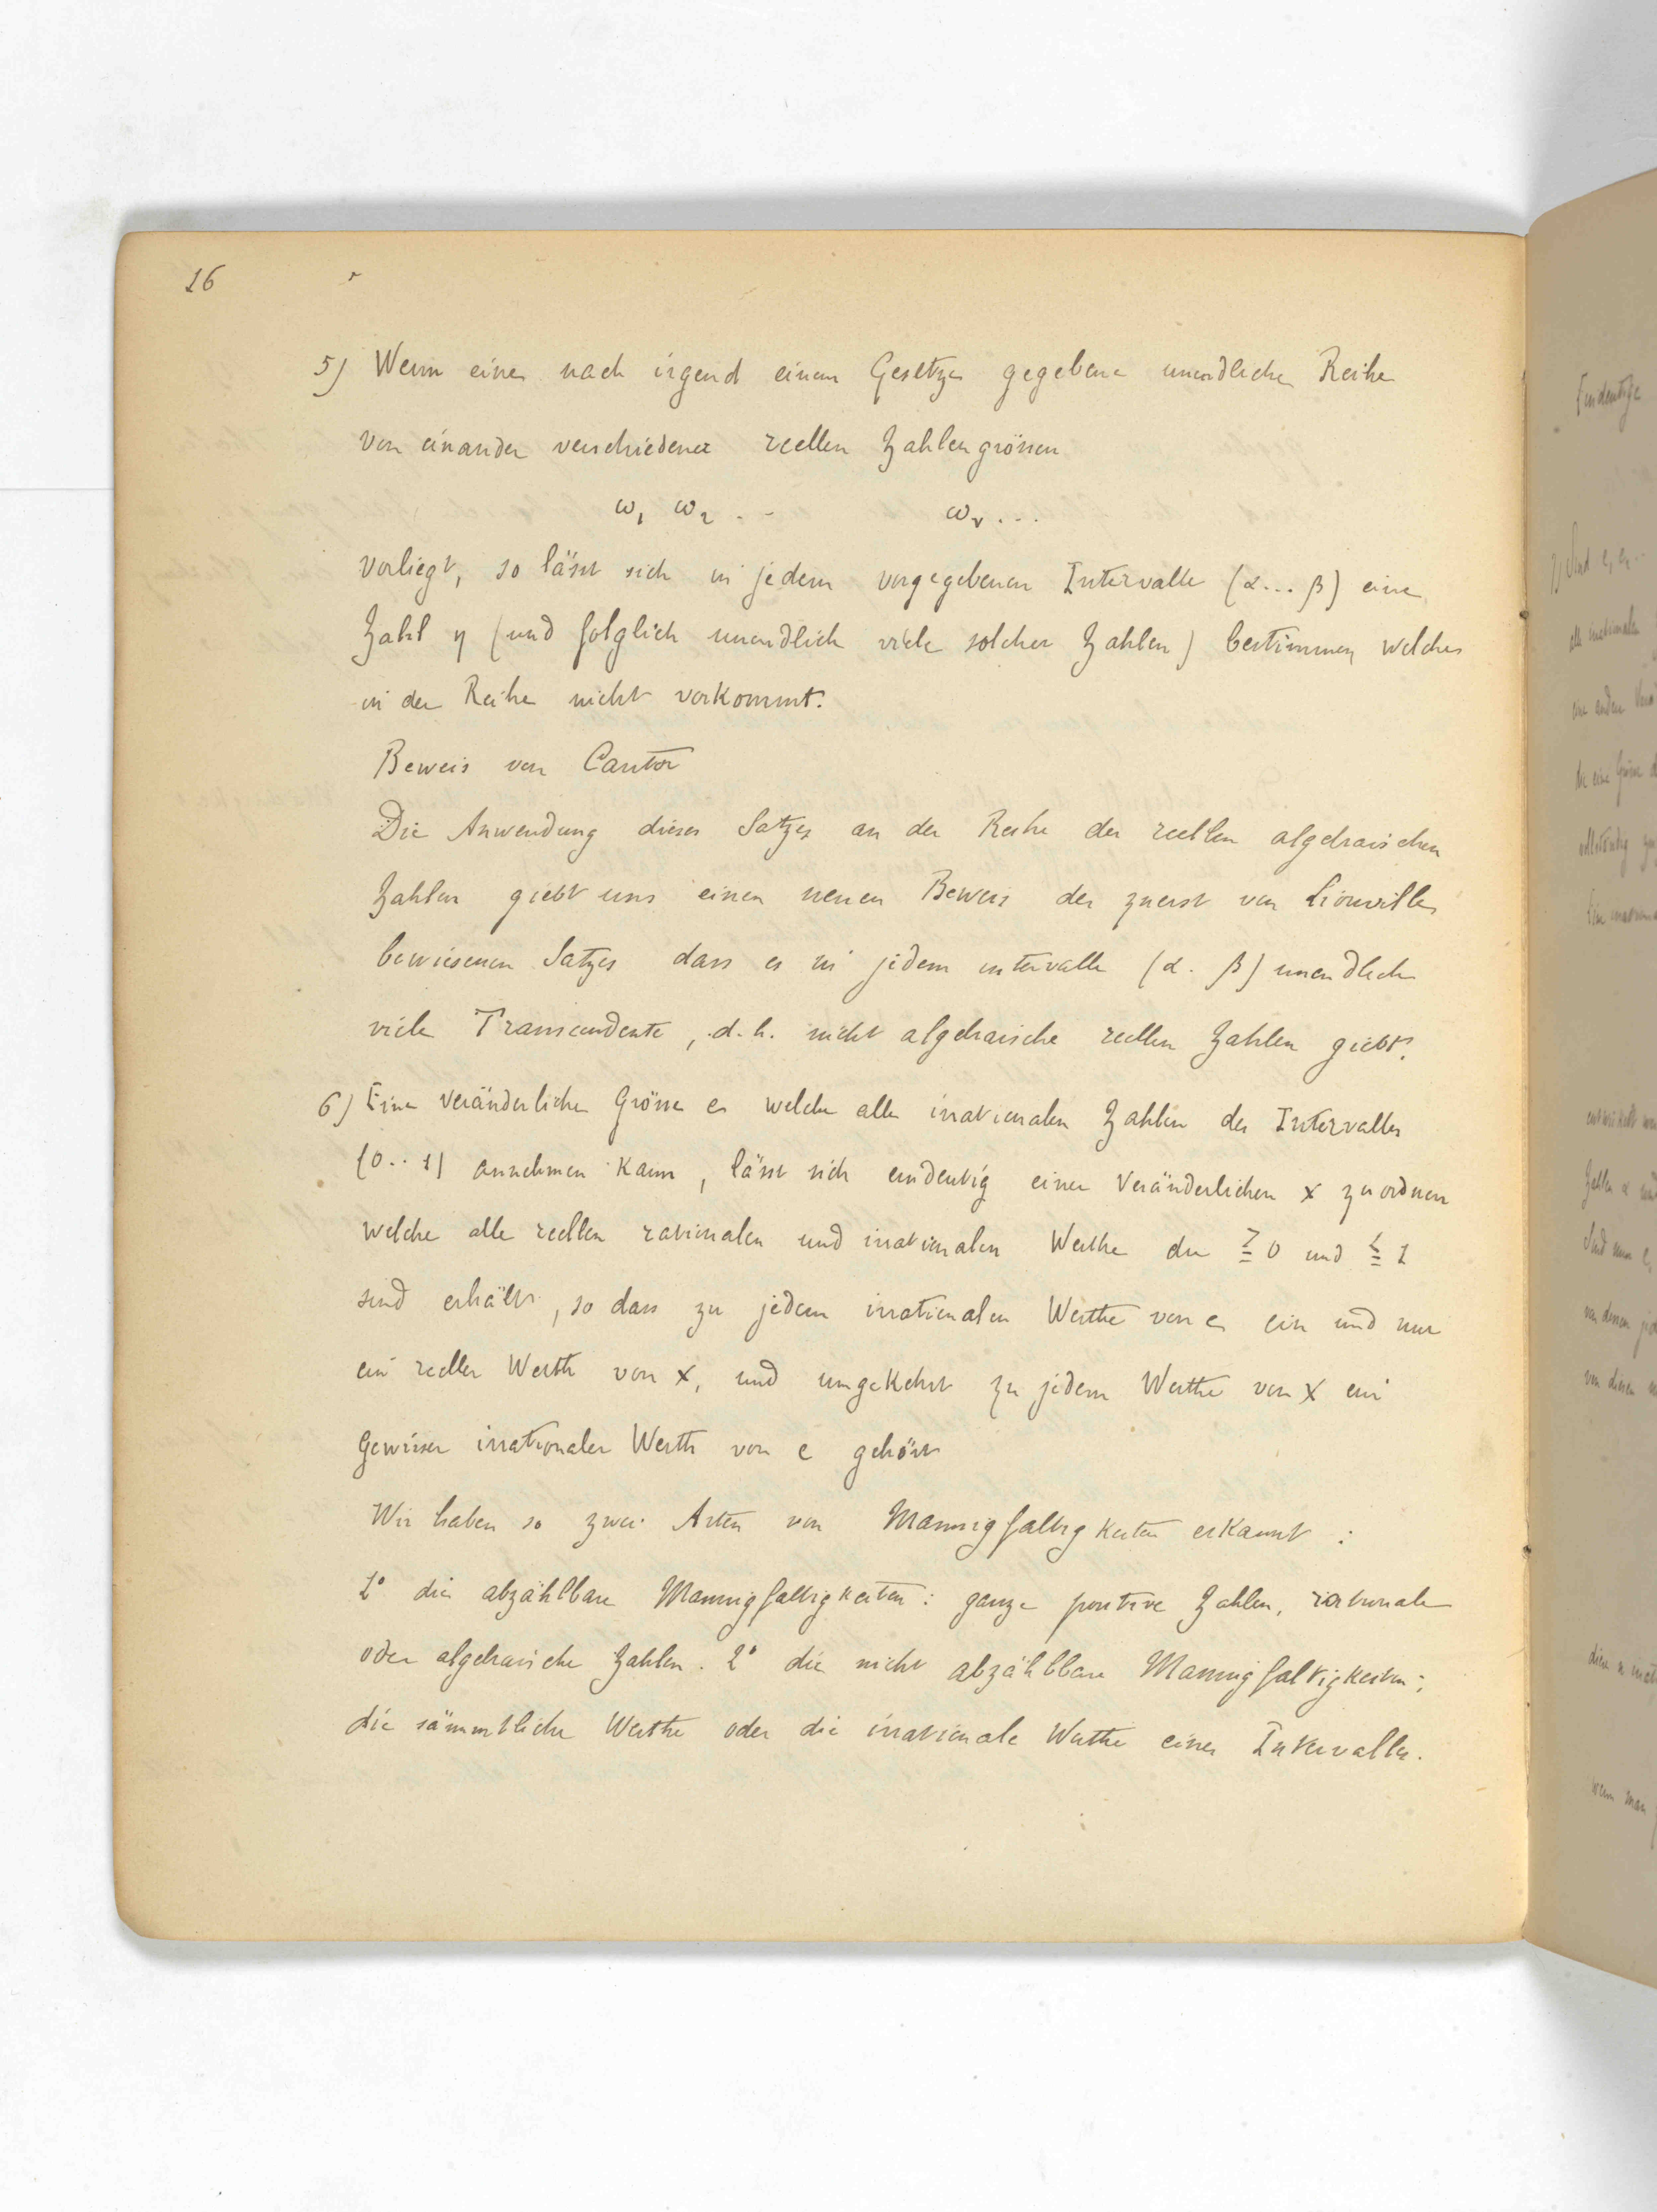 16
5) Wenn eine nach irgend einem Gesetze gegebene unendliche Reihe
von einander verschiedener reellen Zahlengrössen
ω₁ ω₂ . . ω_ν . . .
vorliegt, so lässt sich in jedem vorgegebenen Intervalle (α... β) eine
Zahl η (und folglich unendlich viele solcher Zahlen) bestimmen welche
in der Reihe nicht vorkommt.
Beweis von Cantor
Die Anwendung dieses Satzes an der Reihe der reellen algebraischen
Zahlen giebt uns einen neuen Beweis des zuerst von Liouville
bewiesenen Satzes dass es in jedem intervalle (α. β) unendlich
viele Transcendente, d.h. nicht algebraische reellen Zahlen giebt.
6) Eine Veränderliche Grösse e welche alle irrationalen Zahlen des Intervalles
(0..1) annehmen kann, lässt sich eindeutig einer Veränderlichen x zuordnen
welche alle reellen rationalen und irrationalen Werthe die ≧ 0 und ≦ 1
sind erhält, so dass zu jedem irrationalen Werthe von e ein und nur
ein reeller Werth von x, und umgekehrt zu jedem Werthe von x ein
Gewisser irrationaler Werth von e gehört
Wir haben so zwei Arten von Mannigfaltigkeiten erkannt :
1° die abzählbare Mannigfaltigkeiten: ganze positive Zahlen, rationale
oder algebraische Zahlen. 2° die nicht abzählbare Mannigfaltigkeiten;
die sämmtliche Werthe oder die irrationale Werthe eines Intervalles.
Eindeutige
7) Sind e, e₁ ..
alle irrationalen